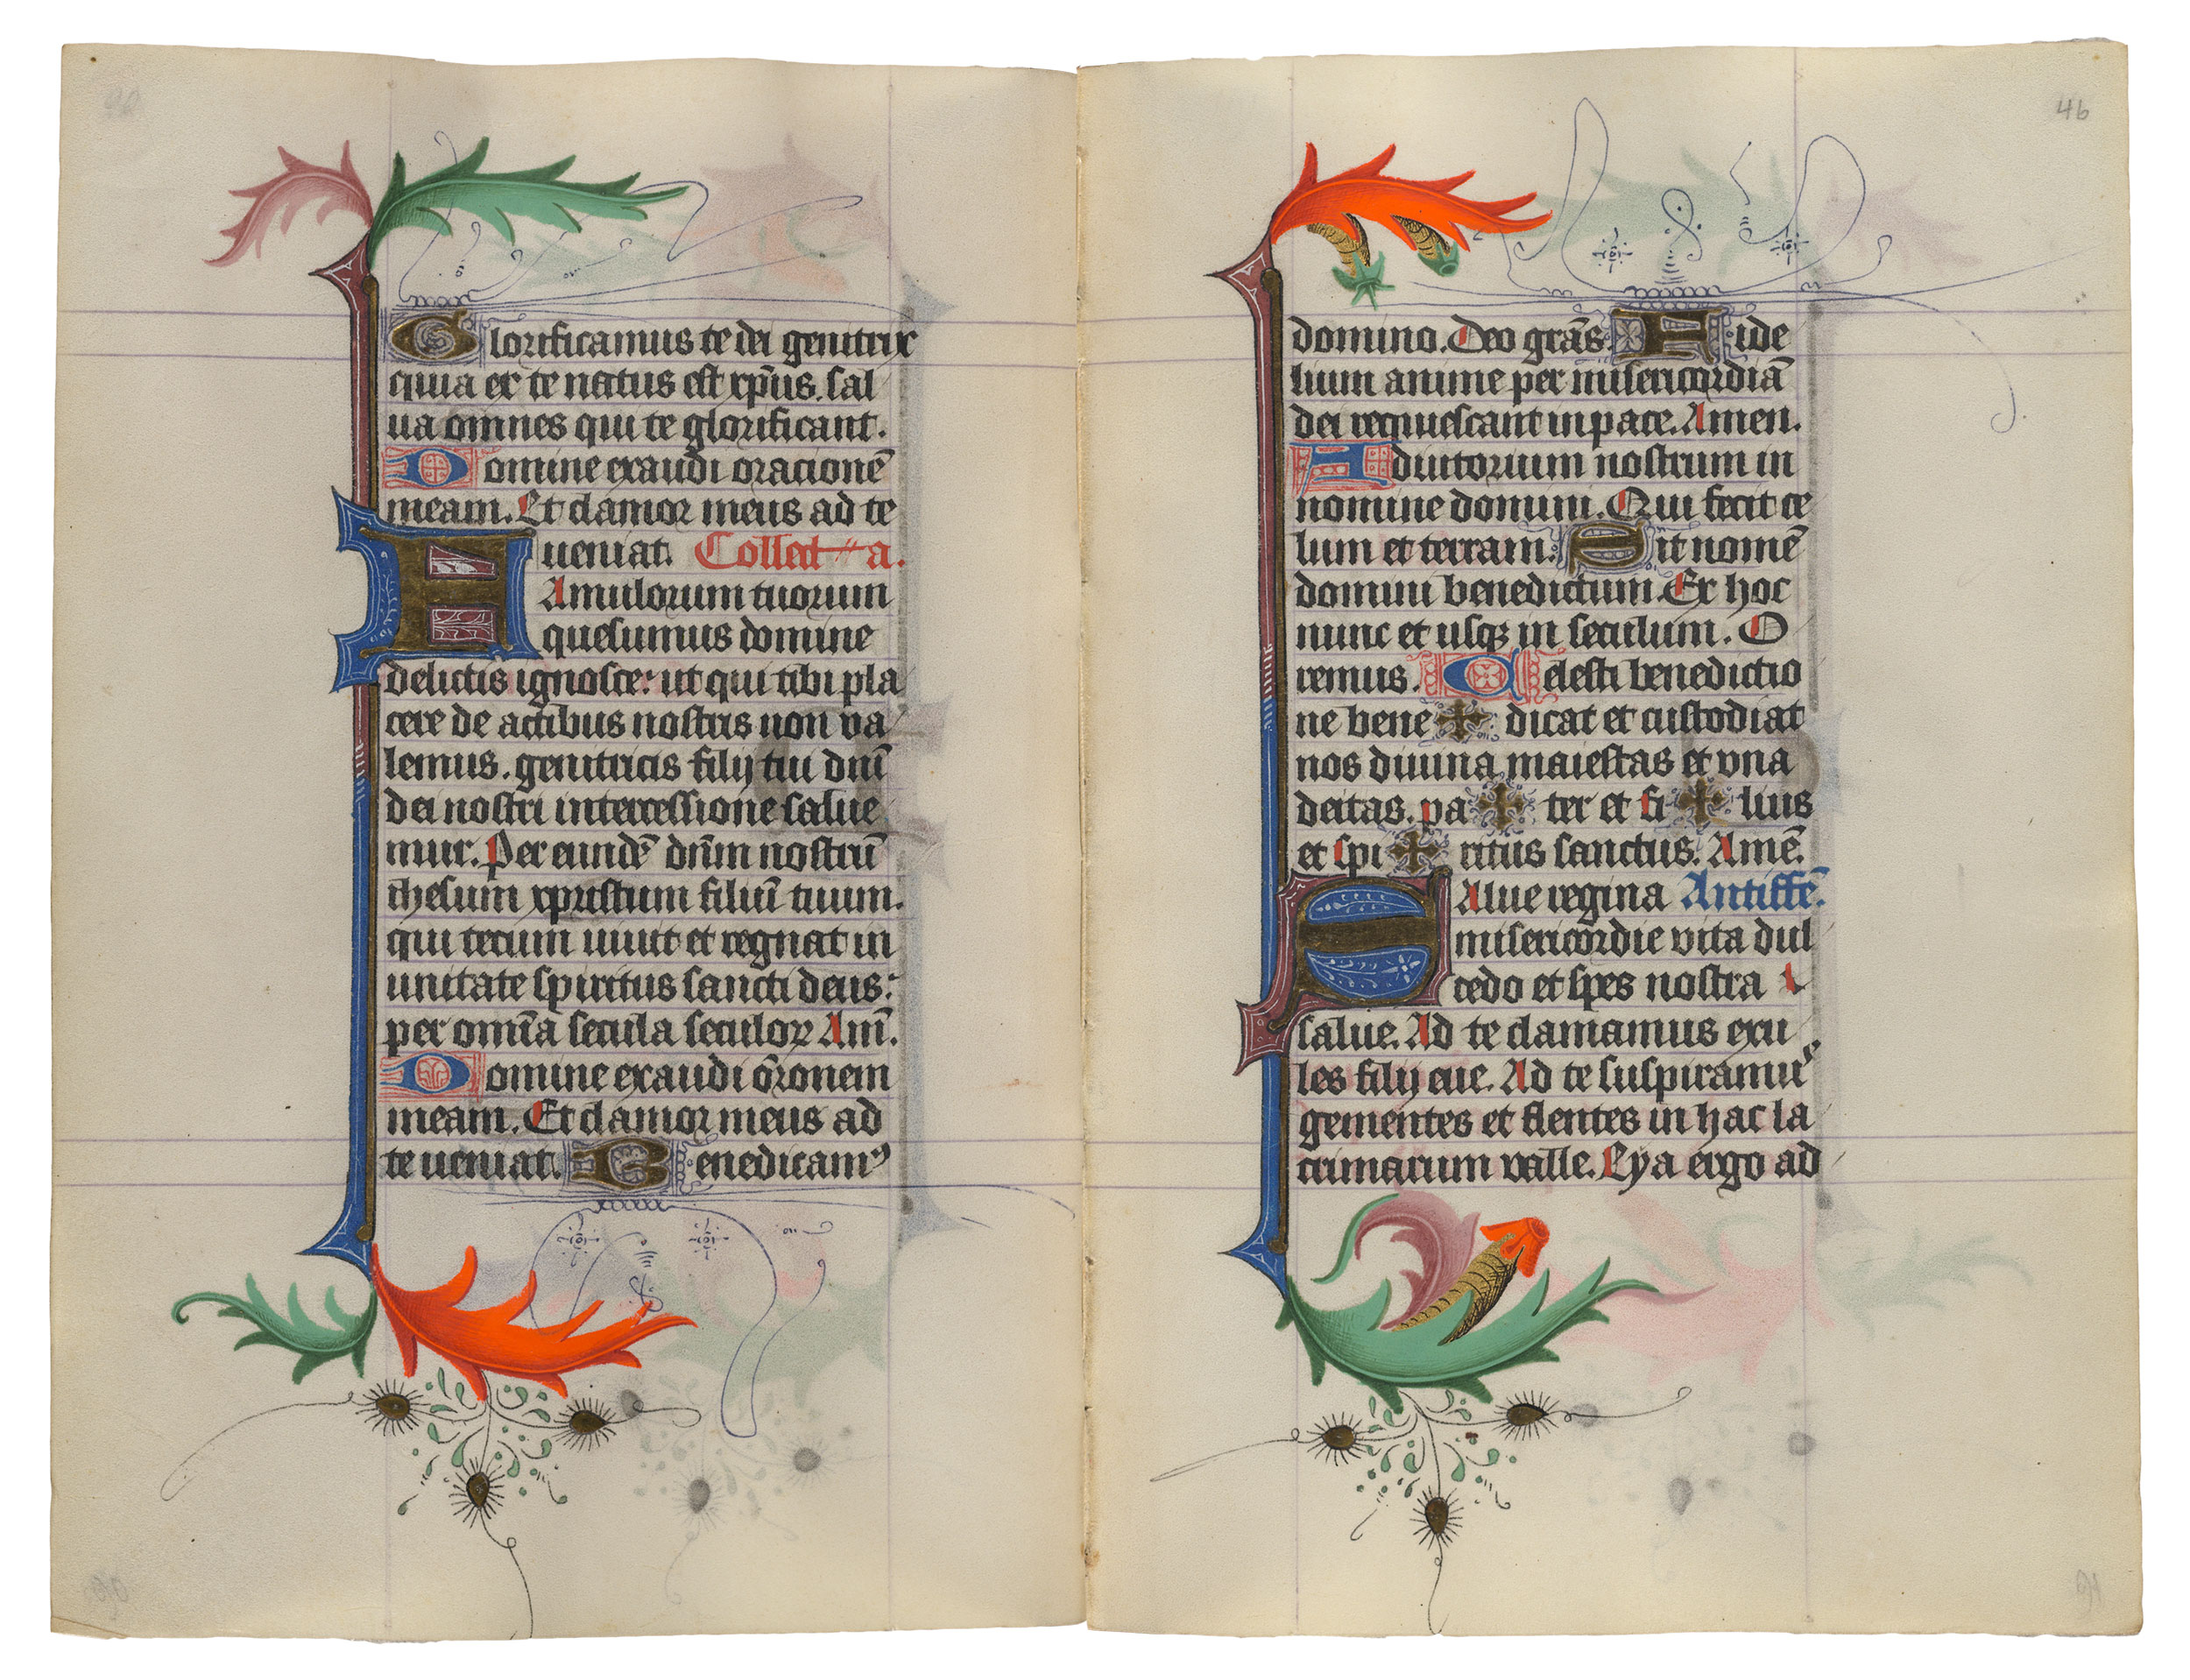 90
Glorificamus te dei genitrix
quia ex te natus est xp̄us. sal
ua omnes qui te glorificant.
Domine exaudi oracionē
meam. Et clamor meus ad te
ueniat. Collecta.
FAmulorum tuorum
quesumus domine
delictis ignosce: ut qui tibi pla
cere de actibus nostris non va
lemus. genitricis filij tui dnī
dei nostri intercessione salue
mur. Per eundē dn̄m nostrū
ihesum xpristum filiū tuum.
qui tecum uiuit et regnat in
unitate spiritus sancti deus:
per omīa secula seculoꝝ Am̄.
Domine exaudi ōronem
meam. Et clamor meus ad
te ueniat. Benedicamꝰ
90
46
domino. Deo grās. Fide
lium anime per misericordiā
dei requiescant in pace. Amen.
Adiutorium nostrum in
nomine domini. Qui fecit ce
lum et terram. Sit nomē
domini benedictum. Ex hoc
nunc et usqꝫ in seculum. O
remus. Celesti benedictio
ne bene ✠ dicat et custodiat
nos diuina maiestas et vna
deitas. pa ✠ ter et fi ✠ lius
et spi ✠ ritus sanctus. Amē.
SAlue regina Antiffē.
misericordie vita dul
cedo et spes nostra
salue. Ad te clamamus exu
les filij eue. Ad te suspiramuˢ
gementes et flentes in hac la
crimarum valle. Eya ergo ad
91